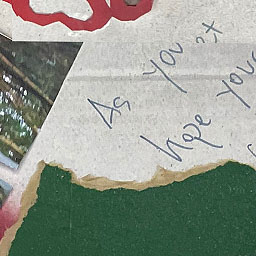 As you
hope you